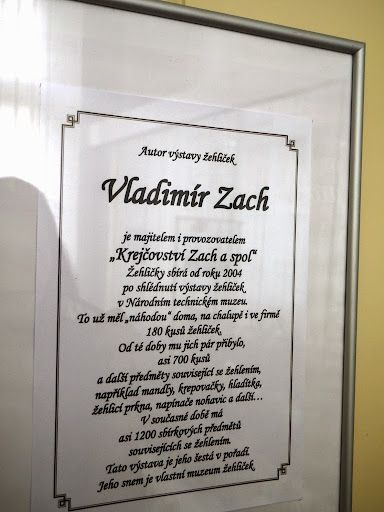 Autor výstavy žehliček
Vladimír Zach
je majitelem i provozovatelem
„Krejčovství Zach a spol“
Žehličky sbírá od roku 2004
po shlédnutí výstavy žehliček
v Národním technickém muzeu.
To už měl „náhodou“ doma, na chalupě i ve firmě
180 kusů žehliček.
Od té doby mu jich pár přibylo,
asi 700 kusů
a další předměty související se žehlením,
například mandly, krepovačky, hladítka,
žehlicí prkna, napínače nohavic a další…
V současné době má
asi 1200 sbírkových předmětů
souvisejících se žehlením.
Tato výstava je jeho šestá v pořadí.
Jeho snem je vlastní muzeum žehliček.